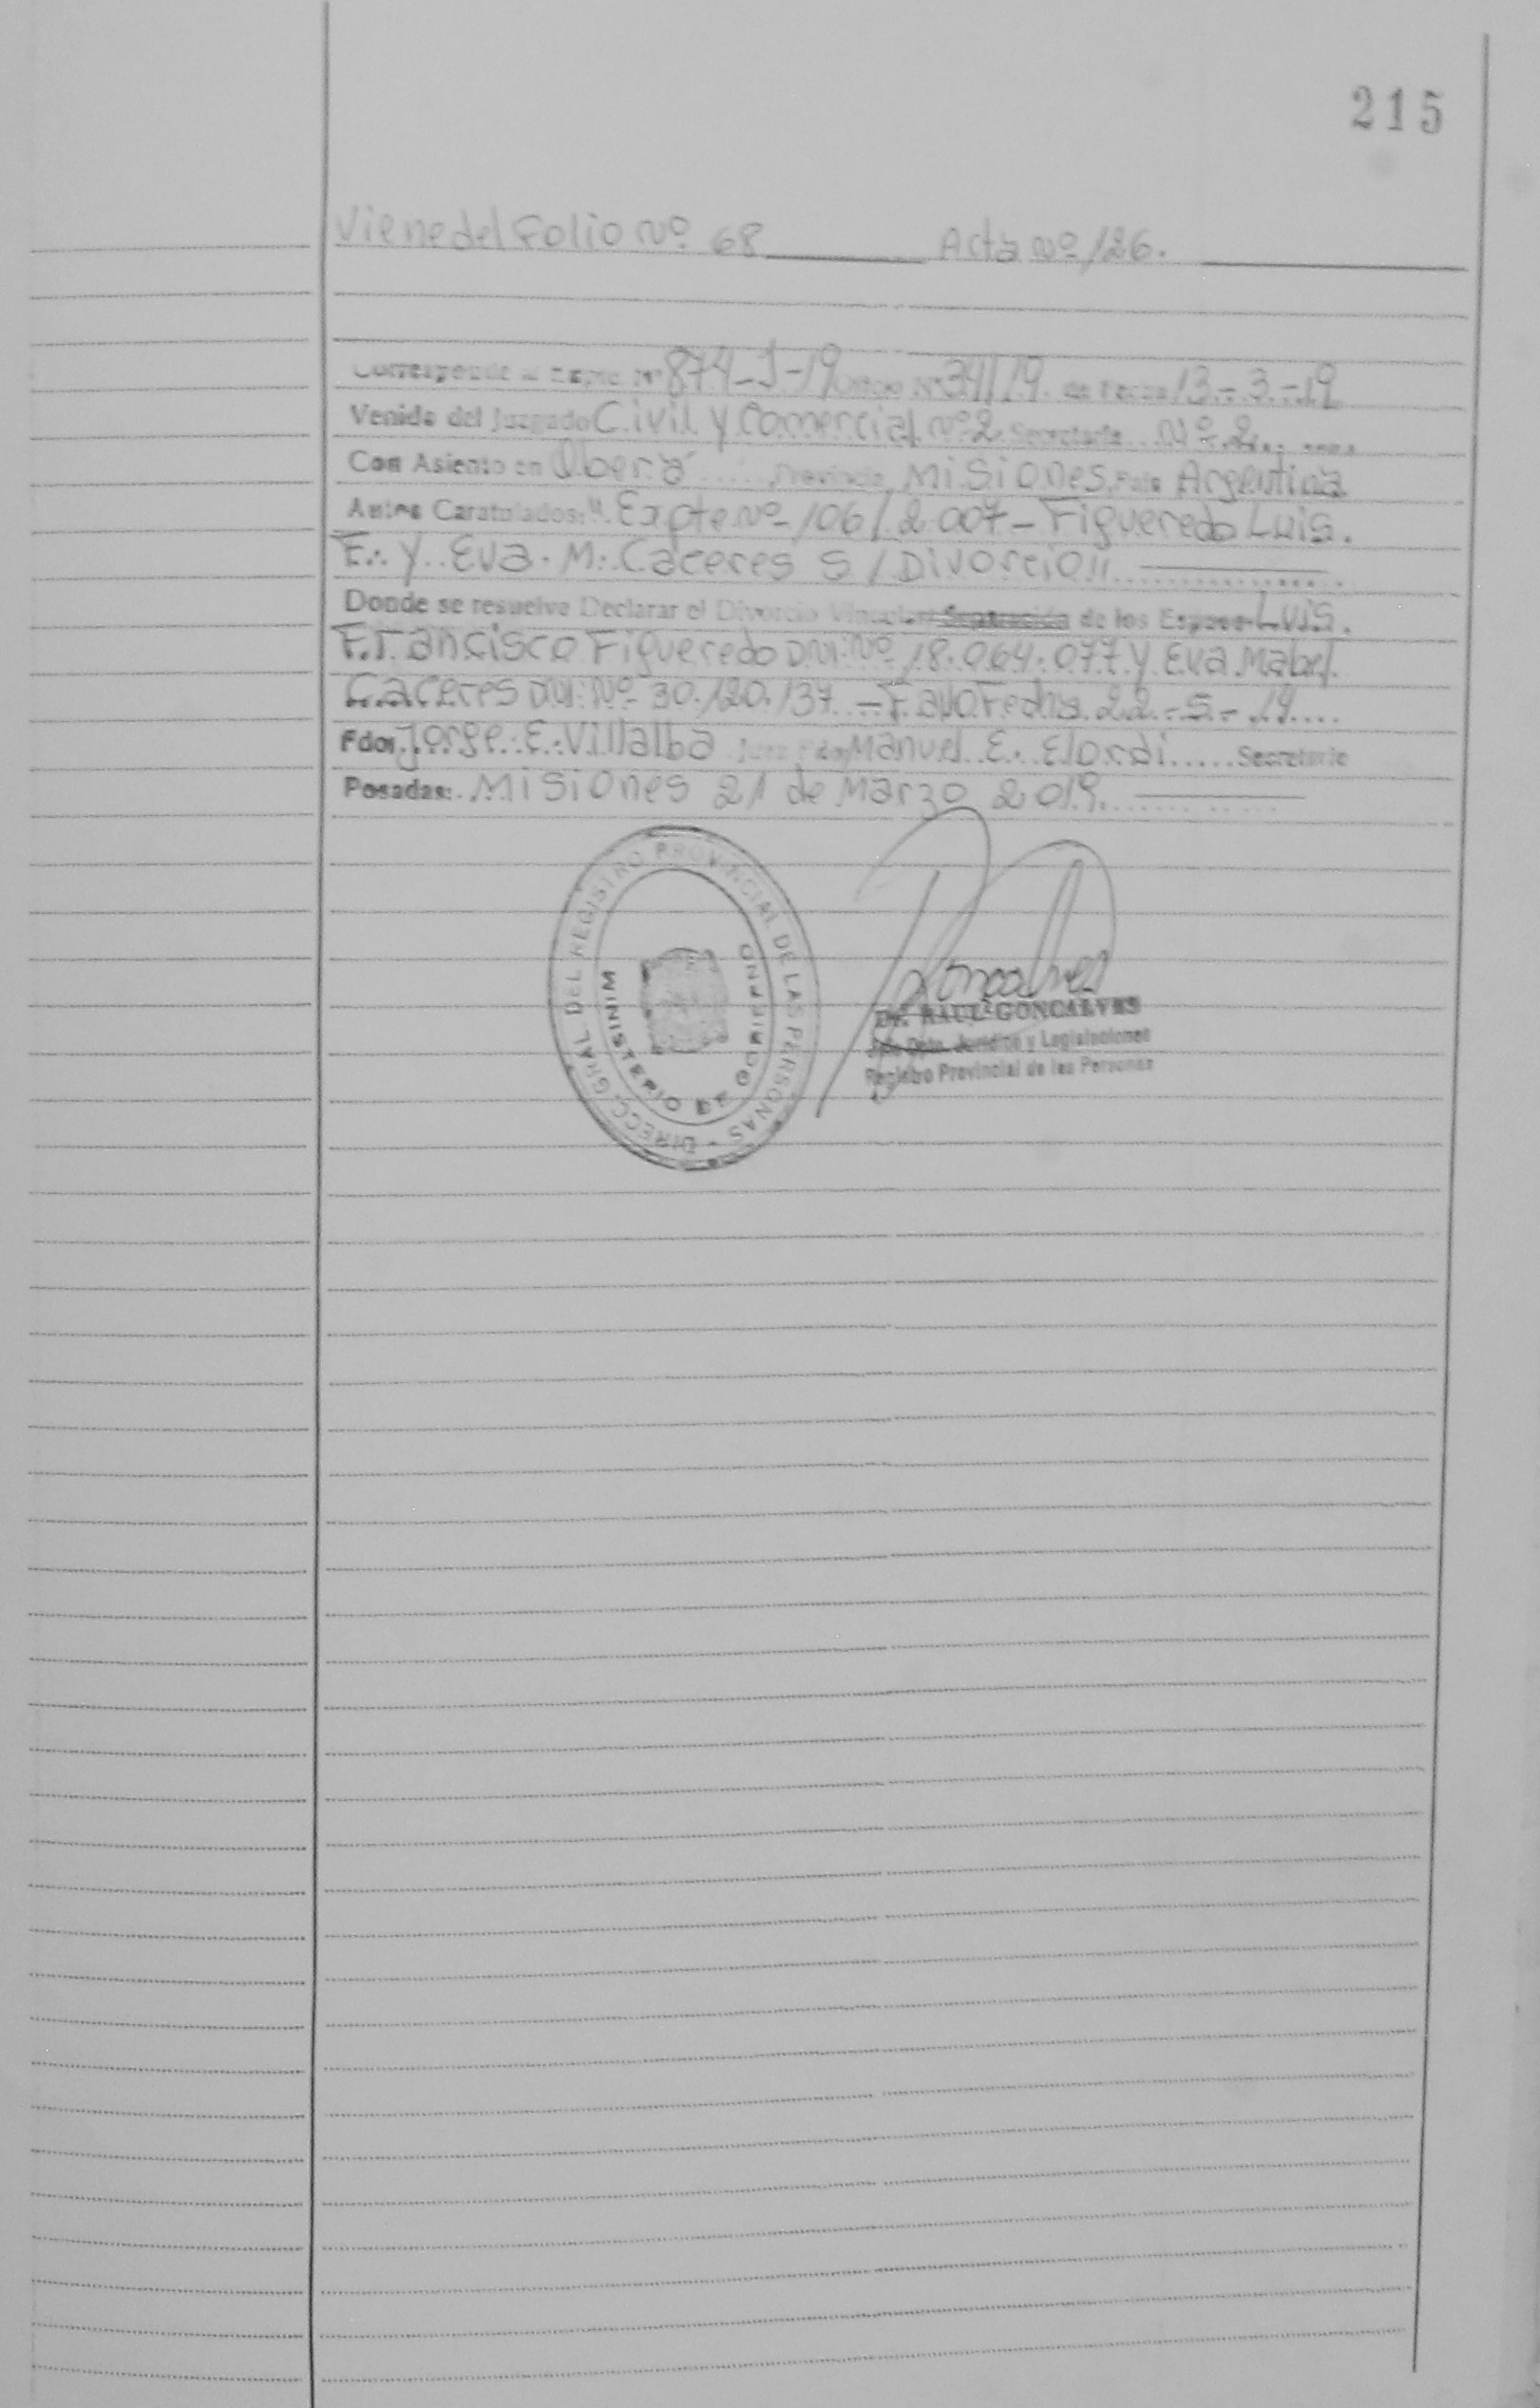 215
Viene del Folio Nº 68 Acta Nº 126.
Corresponde al Expte Nº 874-J-19 Oficio Nº 34/19. de Fecha 13.-3.-19
Venido del Juzgado Civil y Comercial Nº 2 Secretaria Nº 2
Con Asiento en Oberá Provincia Misiones País Argentina
Autos Caratulados: "Expte Nº 106/2.007 - Figueredo Luis.
F. y Eva. M. Caceres S/Divorcio"
Donde se resuelve Declarar el Divorcio Vincular/Separación de los Esposos Luis.
Francisco Figueredo DNI: Nº 18.064.077 y Eva Mabel.
Caceres DNI: Nº 30.120.137 - Fallo Fecha 22-5-19
Fdo: Jorge. E. Villalba Juez Fdo: Manuel E. Elordi Secretario
Posadas: Misiones 21 de Marzo 2019.
DIRECC. GRAL. DEL REGISTRO PROVINCIAL DE LAS PERSONAS -
MINISTERIO DE GOBIERNO
Goncalves
Dr. RAUL GONCALVES
Jefe Dpto. Jurídico y Legislaciones
Registro Provincial de las Personas